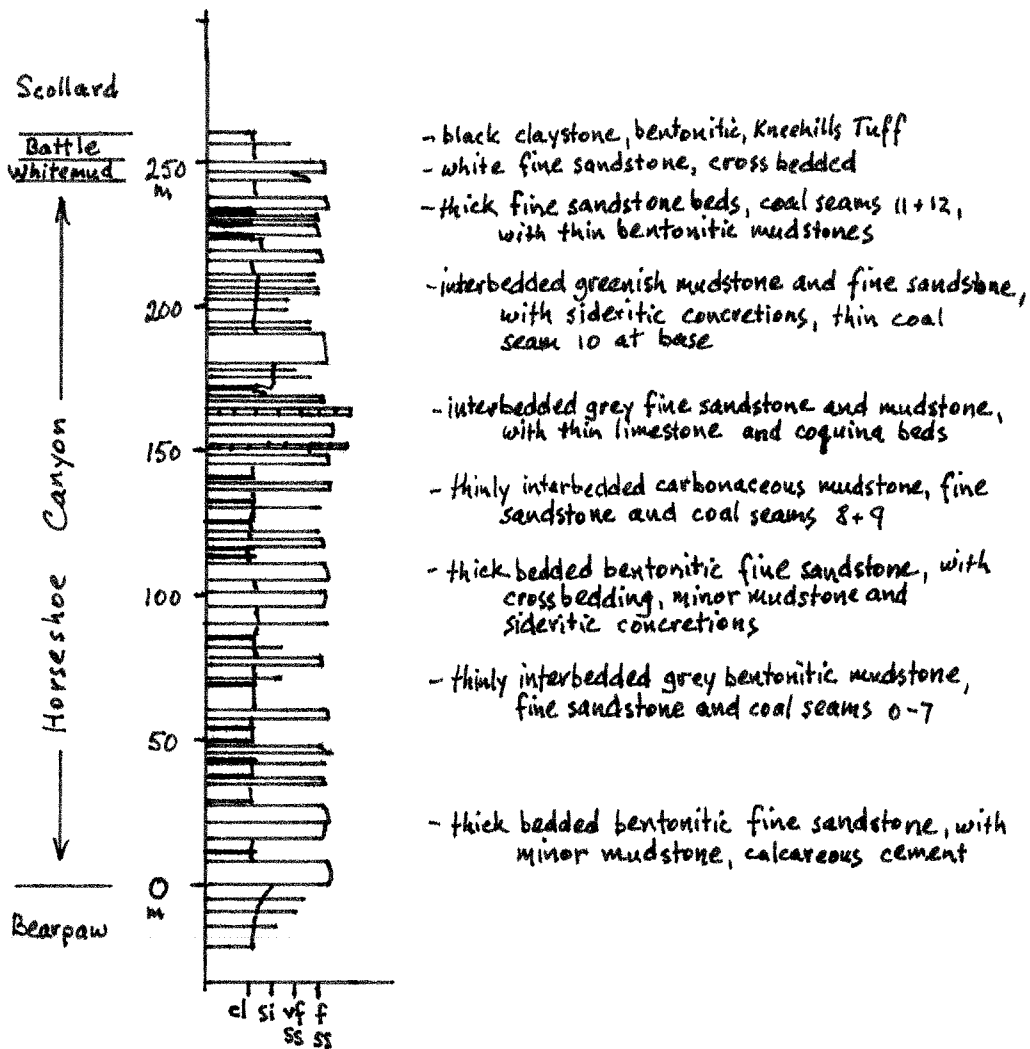 Scollard
Battle
Whitemud
Horseshoe Canyon
Bearpaw
250
m
200
150
100
50
0
m
cl si vf f
ss ss
- black claystone, bentonitic, Kneehills Tuff
- white fine sandstone, cross bedded
- thick fine sandstone beds, coal seams 11+12,
with thin bentonitic mudstones
- interbedded greenish mudstone and fine sandstone,
with sideritic concretions, thin coal
seam 10 at base
- interbedded grey fine sandstone and mudstone,
with thin limestone and coquina beds
- thinly interbedded carbonaceous mudstone, fine
sandstone and coal seams 8+9
- thick bedded bentonitic fine sandstone, with
crossbedding, minor mudstone and
sideritic concretions
- thinly interbedded grey bentonitic mudstone,
fine sandstone and coal seams 0-7
- thick bedded bentonitic fine sandstone, with
minor mudstone, calcareous cement